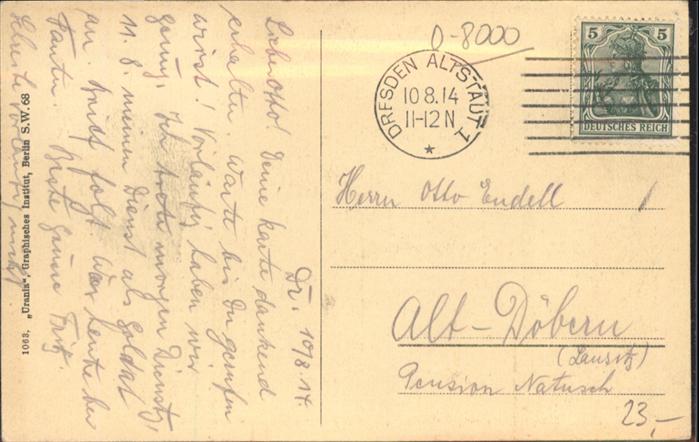 Dr. 10/8 14.
Lieber Otto! Deine Karte dankend
erhalten warte bis Du gerufen
wirst! Vorläufig haben wir
genug. Ich trete morgen Dienst,
11. 8. meinen Dienst als Soldat
an. Brief folgt. War heute bei
Tante. Beste Grüsse Fritz.
Schreibe vorläufig nicht!
1063, „Urania", Graphisches Institut, Berlin S.W. 68
D-8000
DRESDEN ALTSTADT 1
10 8.14
11-12 N.
5 5
DEUTSCHES REICH
Herrn Otto Endell
Alt-Döbern
(Lausitz)
Pension Natusch
23,-